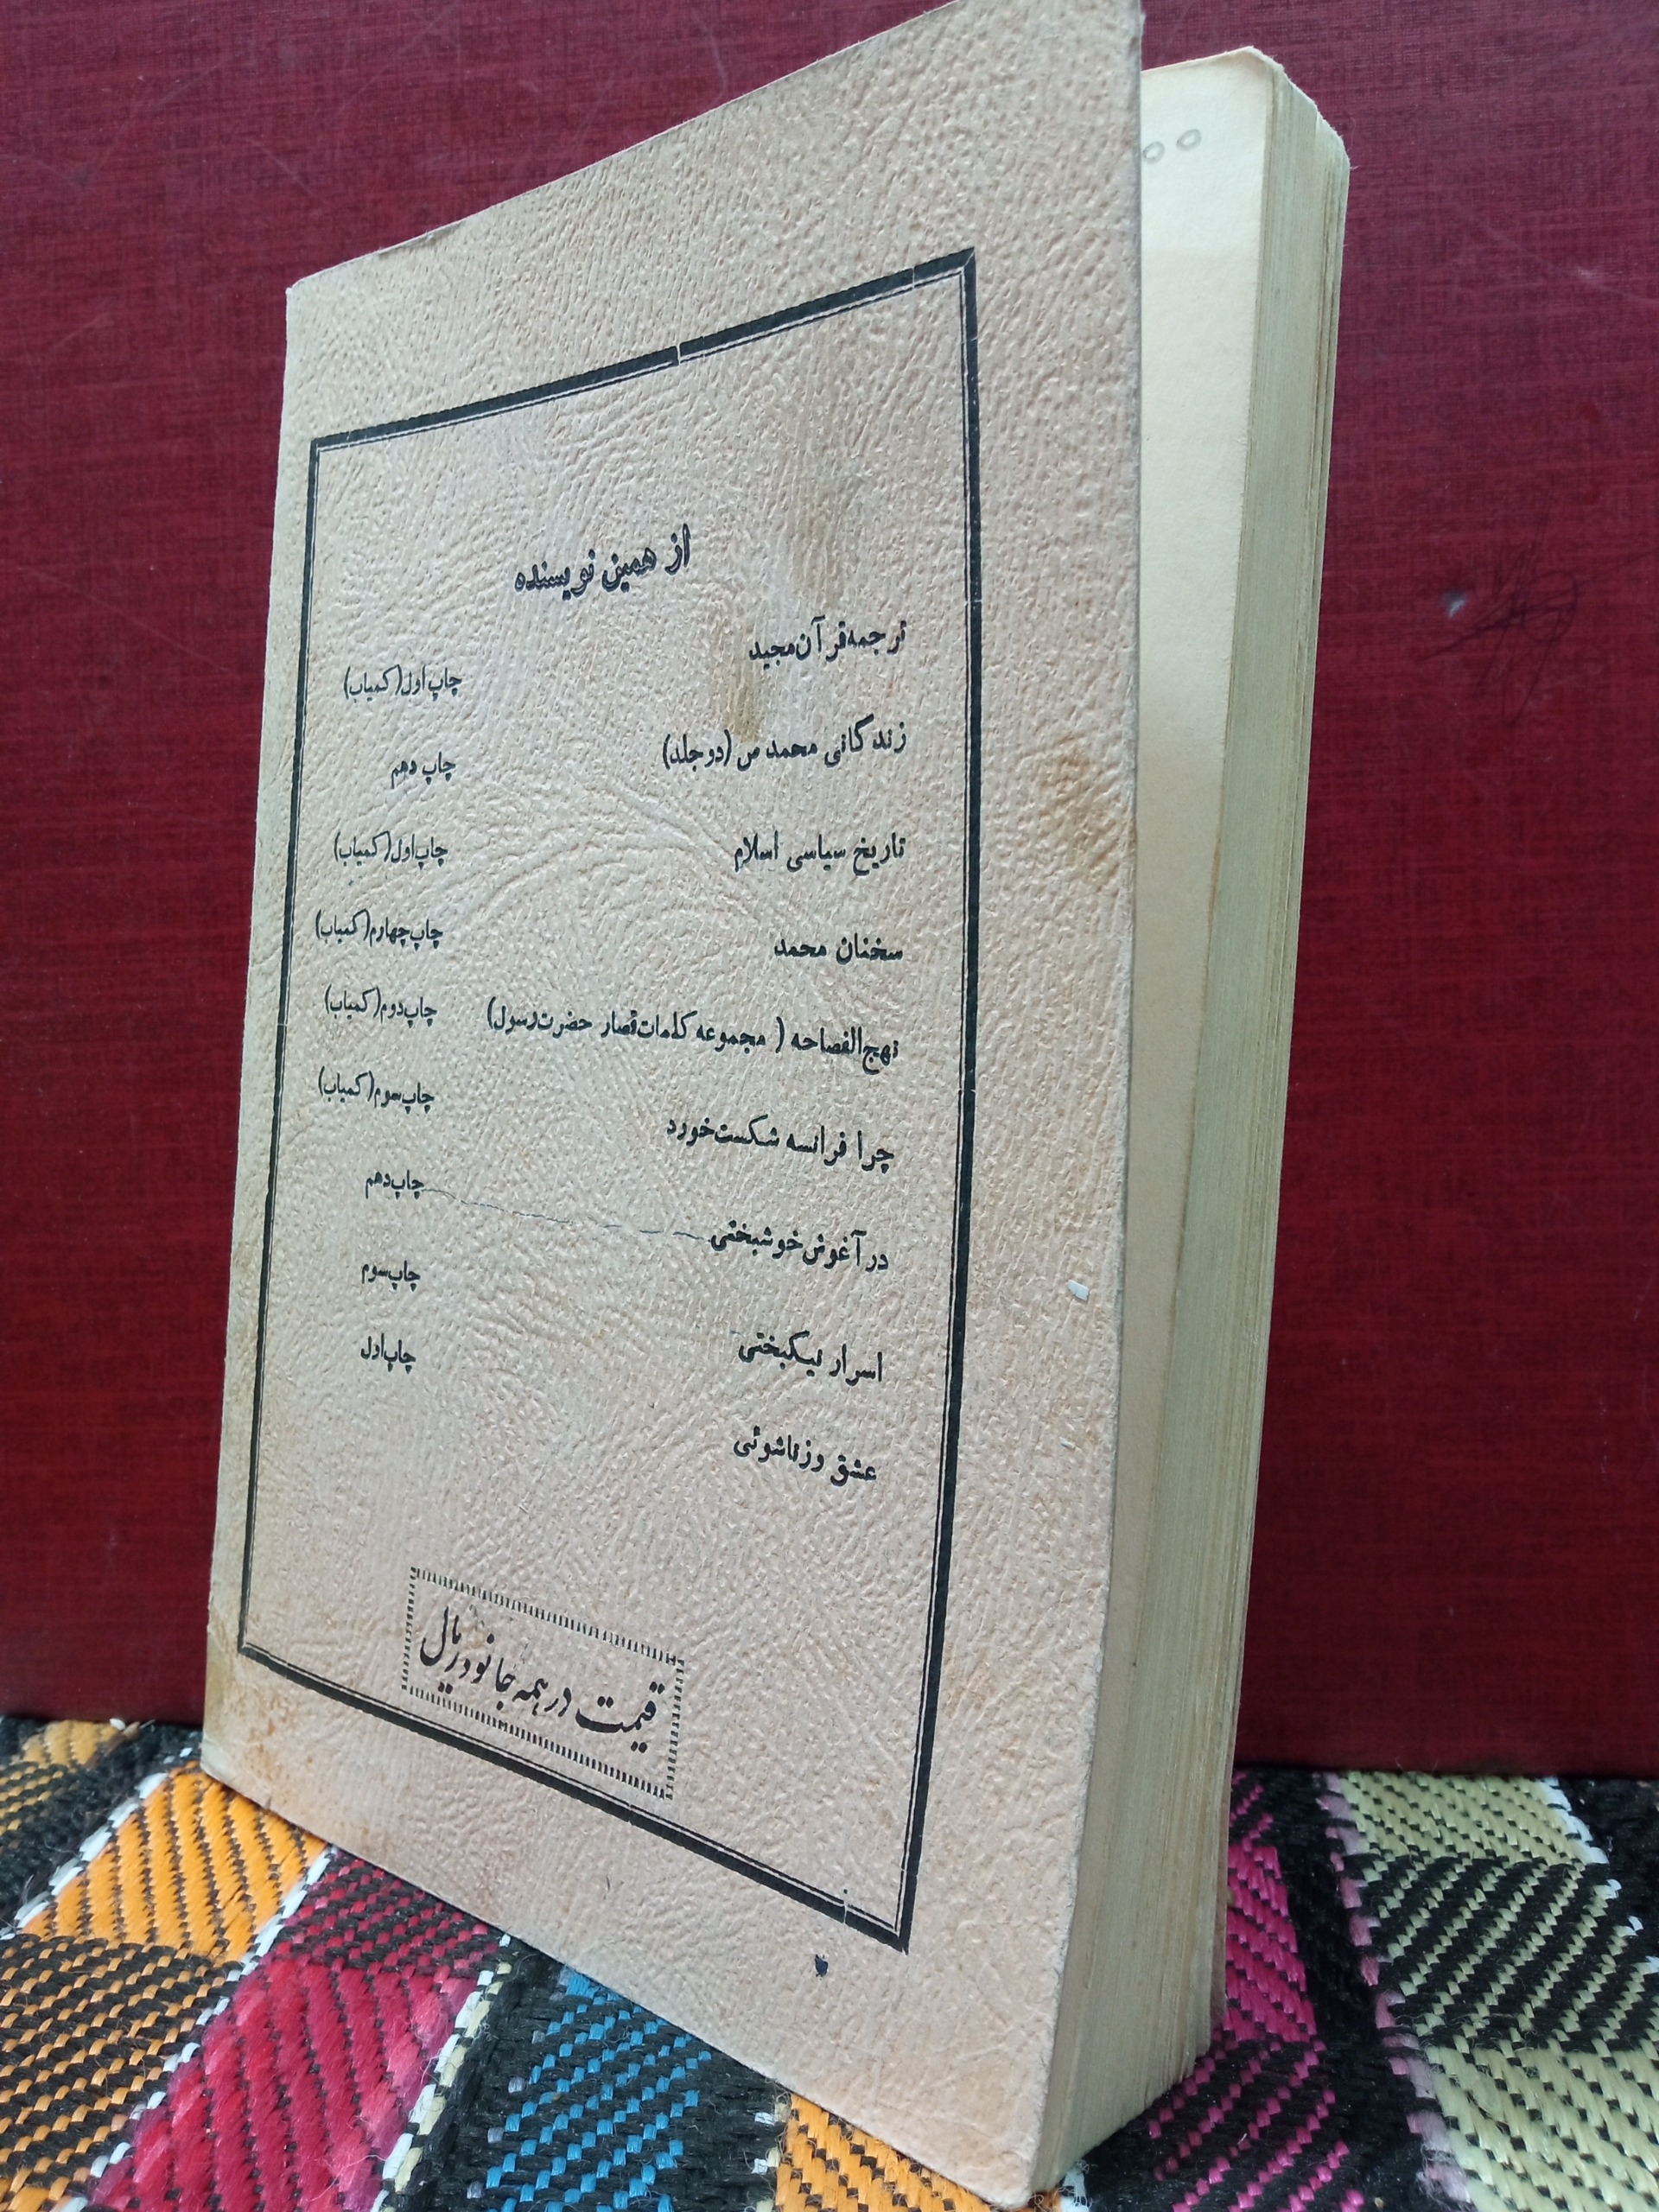 از همین نویسنده
ترجمه قرآن مجید چاپ اول (کمیاب)
زندگانی محمد ص (دو جلد) چاپ دهم
تاریخ سیاسی اسلام چاپ اول (کمیاب)
سخنان محمد چاپ چهارم (کمیاب)
نهج الفصاحه (مجموعه کلمات قصار حضرت رسول) چاپ دوم (کمیاب)
چرا فرانسه شکست خورد چاپ سوم (کمیاب)
در آغوش خوشبختی چاپ دهم
اسرار نیکبختی چاپ سوم
عشق و زناشوئی چاپ اول
قیمت در همه جا نود ریال